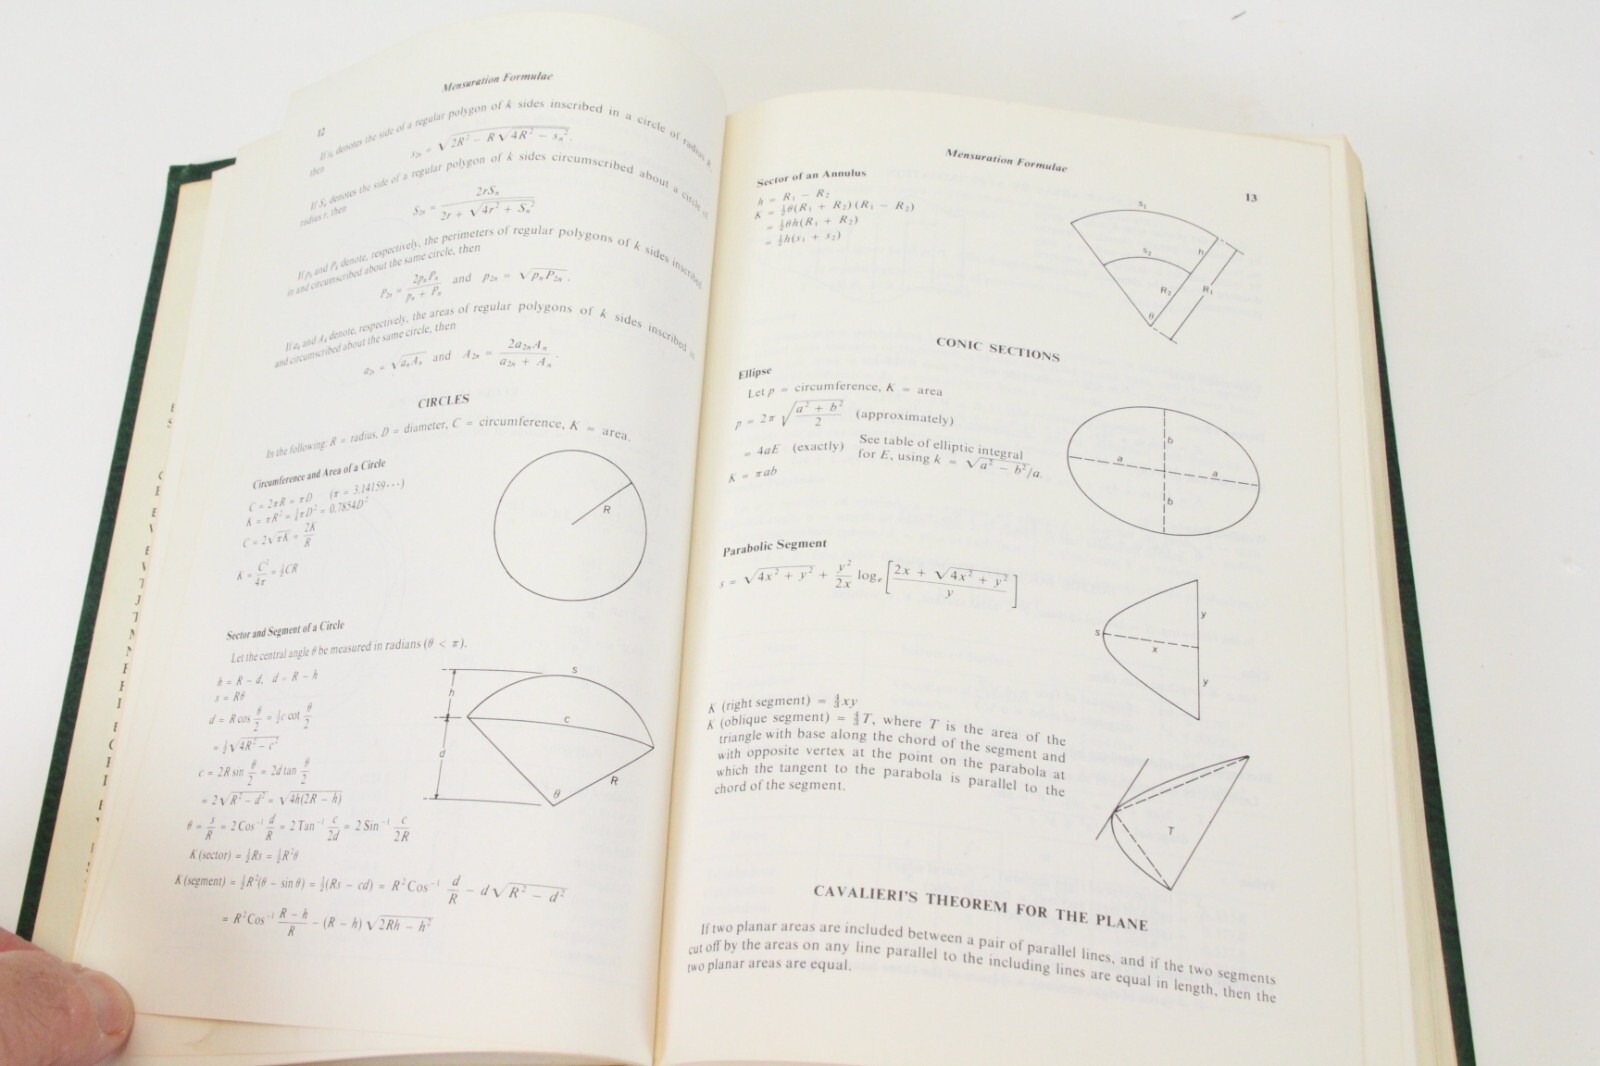 Mensuration Formulae
12
If sₖ denotes the side of a regular polygon of k sides inscribed in a circle of radius R,
then
s₂ₙ = √(2R² − R√(4R² − sₙ²)).
If Sₖ denotes the side of a regular polygon of k sides circumscribed about a circle of
radius r, then
S₂ₙ = 2rSₙ / (2r + √(4r² + Sₙ²))
If pₖ and Pₖ denote, respectively, the perimeters of regular polygons of k sides inscribed
in and circumscribed about the same circle, then
P₂ₙ = 2pₙPₙ / (pₙ + Pₙ) and p₂ₙ = √(pₙP₂ₙ).
If aₖ and Aₖ denote, respectively, the areas of regular polygons of k sides inscribed in
and circumscribed about the same circle, then
a₂ₙ = √(aₙAₙ) and A₂ₙ = 2a₂ₙAₙ / (a₂ₙ + Aₙ).
CIRCLES
In the following: R = radius, D = diameter, C = circumference, K = area.
Circumference and Area of a Circle
C = 2πR = πD (π = 3.14159···)
K = πR² = ¼πD² = 0.7854D²
C = 2√(πK) = 2K/R
K = C²/4π = ½CR
R
Sector and Segment of a Circle
Let the central angle θ be measured in radians (θ < π).
h = R − d, d = R − h
s = Rθ
d = R cos θ/2 = ½c cot θ/2
= ½√(4R² − c²)
c = 2R sin θ/2 = 2d tan θ/2
= 2√(R² − d²) = √(4h(2R − h))
θ = s/R = 2 Cos⁻¹ d/R = 2 Tan⁻¹ c/2d = 2 Sin⁻¹ c/2R
K (sector) = ½Rs = ½R²θ
K (segment) = ½R²(θ − sin θ) = ½(Rs − cd) = R² Cos⁻¹ d/R − d√(R² − d²)
= R² Cos⁻¹ (R − h)/R − (R − h)√(2Rh − h²)
s
h
c
d
R
θ
Mensuration Formulae
13
Sector of an Annulus
h = R₁ − R₂
K = ½θ(R₁ + R₂)(R₁ − R₂)
= ½θh(R₁ + R₂)
= ½h(s₁ + s₂)
s₁
s₂
h
R₂
R₁
θ
CONIC SECTIONS
Ellipse
Let p = circumference, K = area
p = 2π√((a² + b²)/2) (approximately)
= 4aE (exactly) See table of elliptic integral
for E, using k = √(a² − b²)/a.
K = πab
b
a
a
b
Parabolic Segment
s = √(4x² + y²) + y²/2x logₑ [(2x + √(4x² + y²))/y]
y
s
x
y
K (right segment) = ⁴⁄₃xy
K (oblique segment) = ⁴⁄₃T, where T is the area of the
triangle with base along the chord of the segment and
with opposite vertex at the point on the parabola at
which the tangent to the parabola is parallel to the
chord of the segment.
T
CAVALIERI'S THEOREM FOR THE PLANE
If two planar areas are included between a pair of parallel lines, and if the two segments
cut off by the areas on any line parallel to the including lines are equal in length, then the
two planar areas are equal.